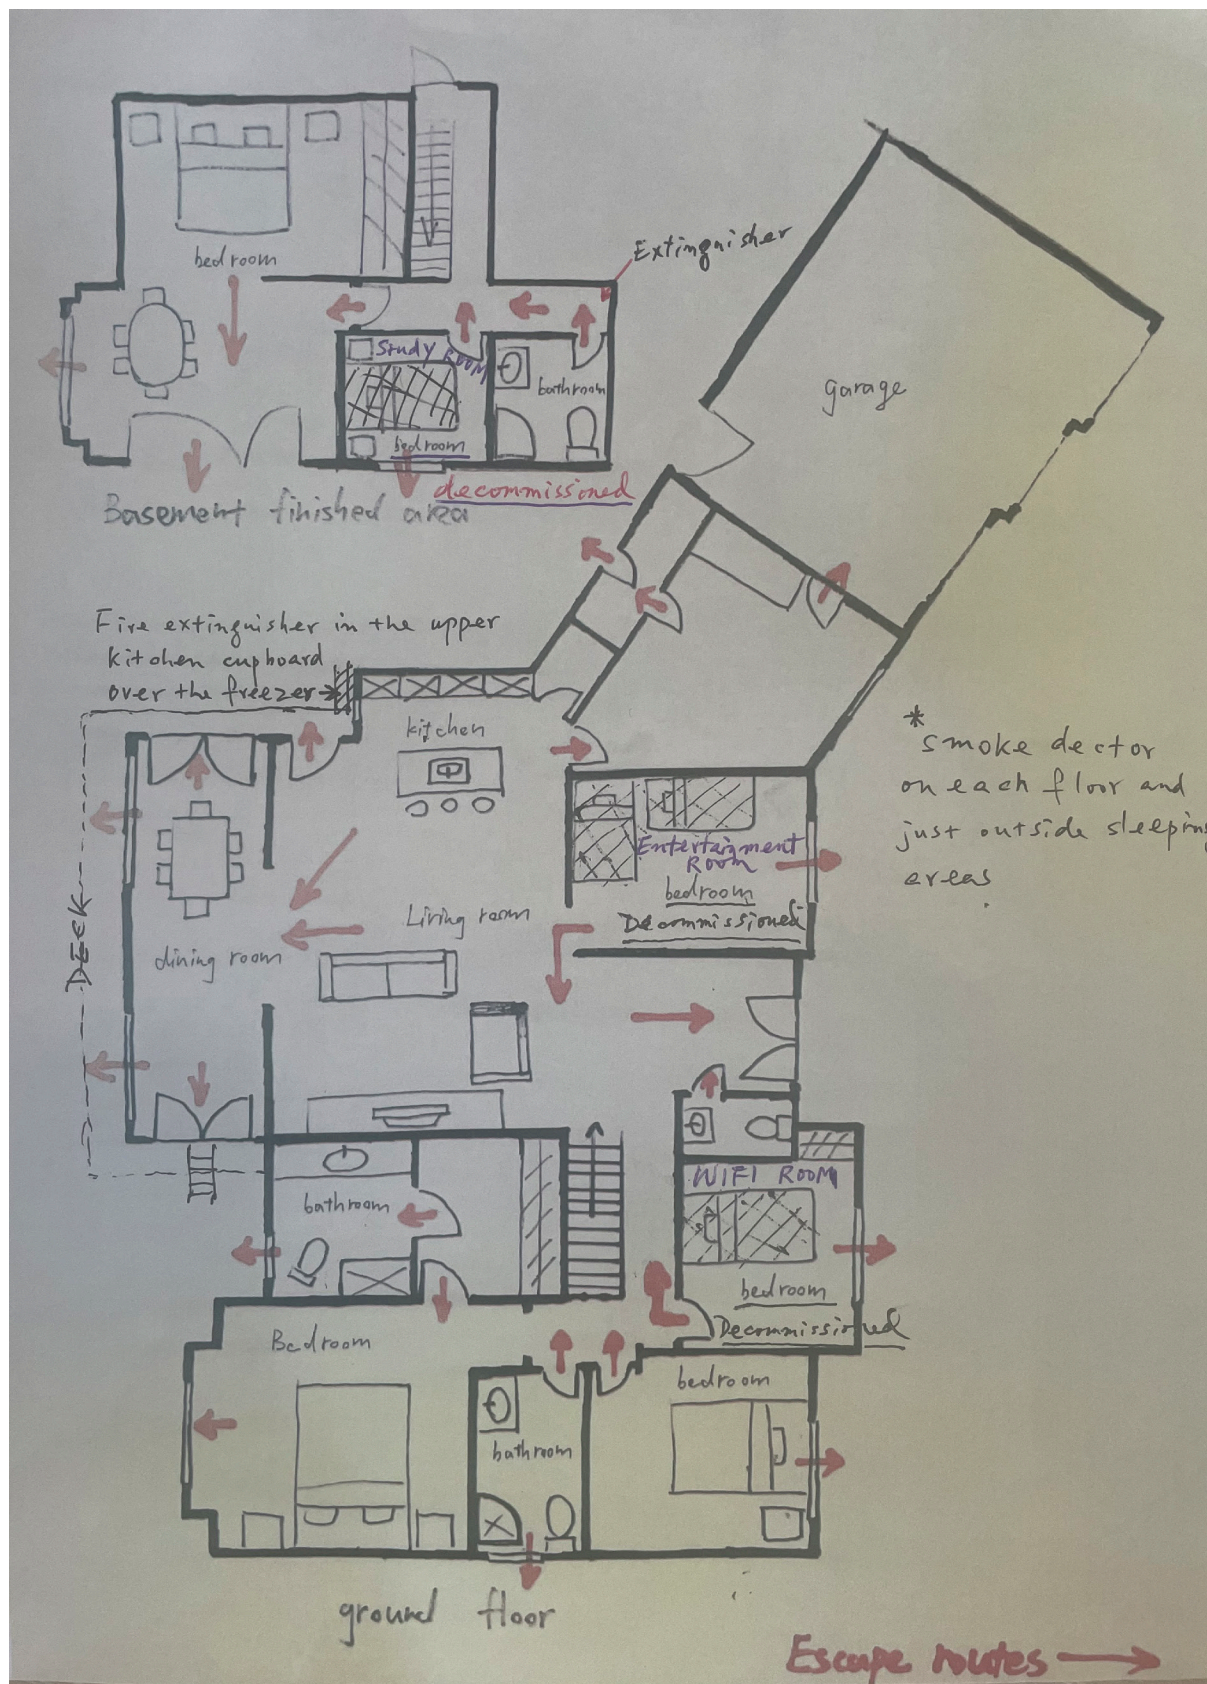 bedroom
Extinguisher
Study ROOM
bathroom
bedroom
decommissioned
Basement finished area
garage
Fire extinguisher in the upper
kitchen cupboard
over the freezer
kitchen
*
smoke dector
on each floor and
just outside sleeping
areas
Entertainment
Room
bedroom
Decommissioned
DECK
Living room
dining room
WIFI ROOM
bathroom
bedroom
Decommissioned
Bedroom
bedroom
bathroom
ground floor
Escape routes